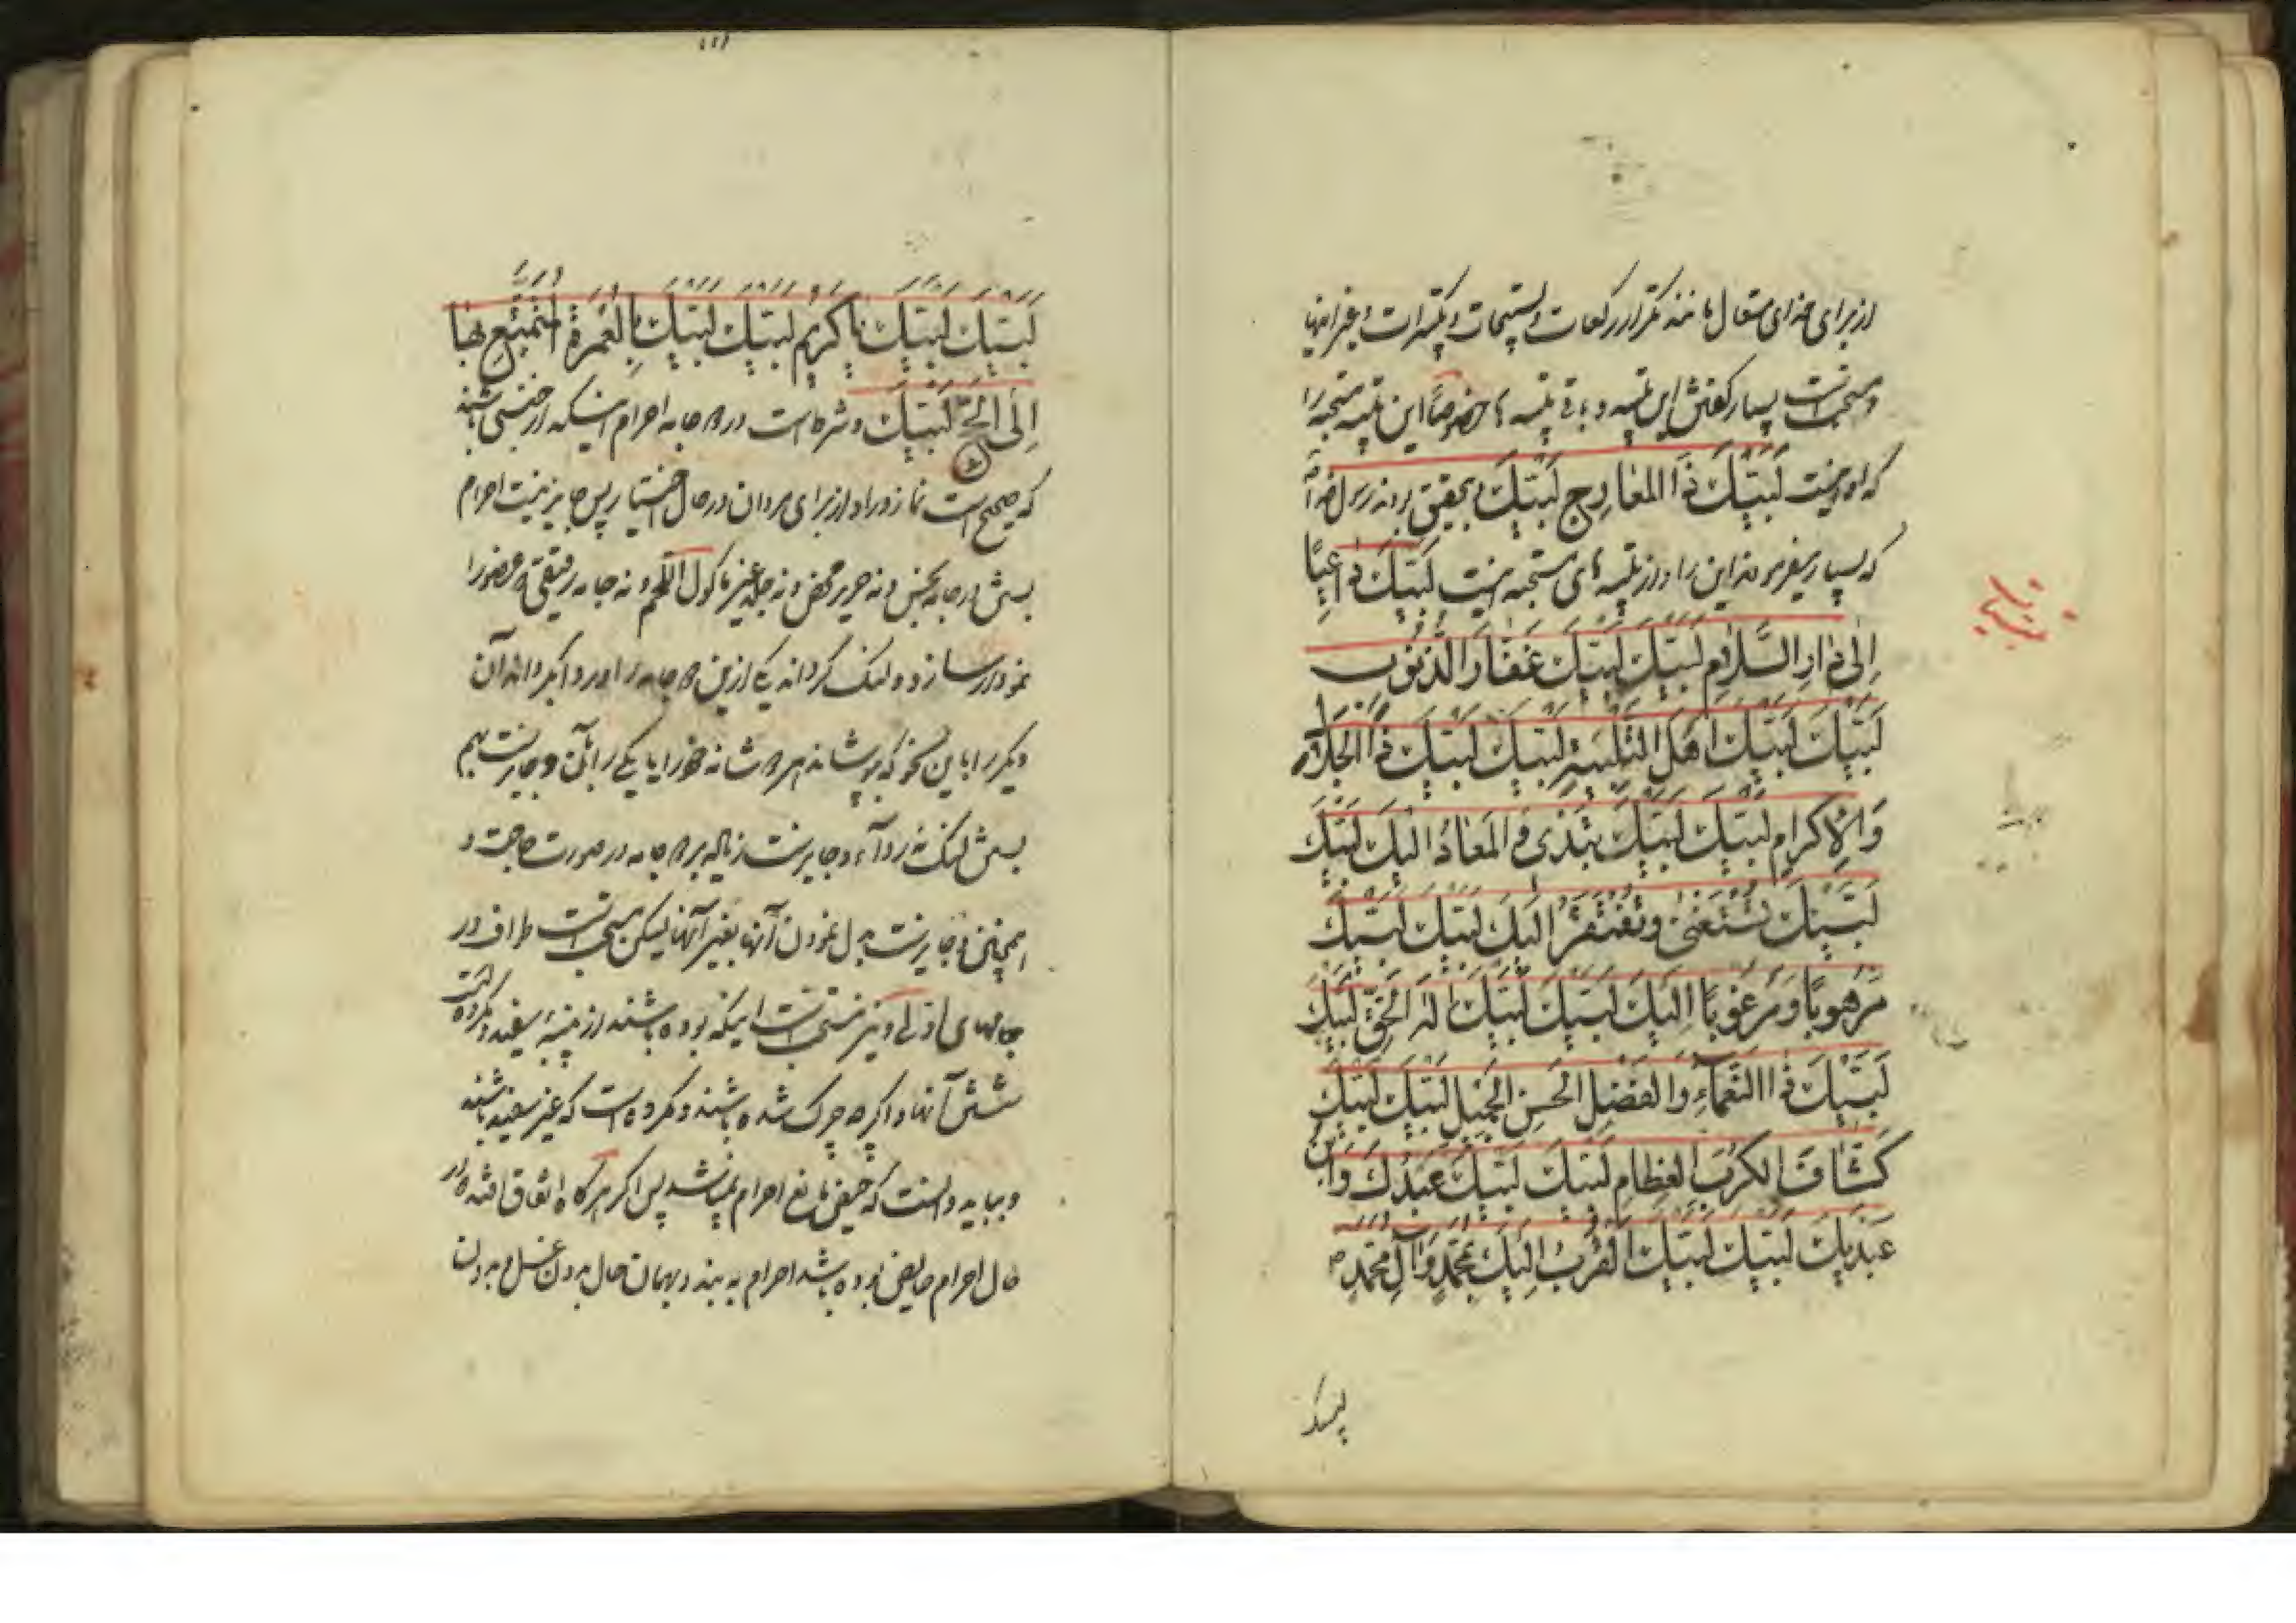 از برای خدای متعال مانند تکرار رکعات و تسبیحات و تکبیرات و غیر اینها
و مستحب است بسیار گفتن این تلبیه و باقی تلبیه ها خصوصاً این تلبیه مستحبه را
که او اینست لَبَّيْكَ ذَا المَعارِجِ لَبَّيْكَ و بتحقیق بودند رسول خدا
که بسیار میفرمودند این را و از تلبیه های مستحبه اینست لَبَّيْكَ دٰاعِيًا
إِلىٰ دٰارِ السَّلٰامِ لَبَّيْكَ لَبَّيْكَ غَفّٰارَ الذُّنُوبِ
لَبَّيْكَ لَبَّيْكَ أَهْلَ التَّلْبِيَةِ لَبَّيْكَ لَبَّيْكَ ذَا الْجَلٰالِ
وَالْإِكْرٰامِ لَبَّيْكَ لَبَّيْكَ تُبْدِئُ وَالمَعٰادُ إِلَيْكَ لَبَّيْكَ
لَبَّيْكَ تَسْتَغْنِي وَيُفْتَقَرُ إِلَيْكَ لَبَّيْكَ لَبَّيْكَ
مَرْهُوبًا وَمَرْغُوبًا إِلَيْكَ لَبَّيْكَ لَبَّيْكَ إِلٰهَ الْحَقِّ لَبَّيْكَ
لَبَّيْكَ ذَا النَّعْمٰاءِ وَالْفَضْلِ الْحَسَنِ الْجَمِيلِ لَبَّيْكَ لَبَّيْكَ
كَشّٰافَ الْكُرَبِ الْعِظٰامِ لَبَّيْكَ لَبَّيْكَ عَبْدُكَ وَابْنُ
عَبْدَيْكَ لَبَّيْكَ لَبَّيْكَ أَتَقَرَّبُ إِلَيْكَ بِمُحَمَّدٍ وَآلِ مُحَمَّدٍ
لبیک
لَبَّيْكَ لَبَّيْكَ يٰا كَرِيمُ لَبَّيْكَ لَبَّيْكَ بِالْعُمْرَةِ الْمُتَمَتَّعِ بِهٰا
إِلَى الْحَجِّ لَبَّيْكَ و شرط است در دو جامه احرام اینکه از جنسی باشند
که صحیح است نماز در او از برای مردان در حال اختیار پس جایز نیست احرام
بستن در جامه نجس و نه حریر محض و نه جلد غیر ماکول اللحم و نه جامه رقیقی که حضور را
نمودار سازد و لنگ گرداند یکی از این دو جامه را و ردا گرداند آن
دیگر را باین نحو که بپوشاند هر دو شانه خود را یا یکی را بآن و جایز نیست بهم
بستن لنگ نه ردآء و جایز است زیاله بر دو جامه در صورت حاجت و
همچنین جایز است بدل نمودن آنها بغیر آنها لیکن مستحب است طواف در
جامهای اولی و نیز مستحب است اینکه بوده باشند از پنبهٔ سفید و مکروه است
شستن آنها و اگر چه چرک شده باشند و مکروه است که غیر سفید باشند
و بباید دانست که حیض مانع احرام نمیباشد پس اگر هرگاه اتفاق افتد در
حال احرام حایض بوده باشد احرام به بندد بهمان حال بدون غسل و بدون